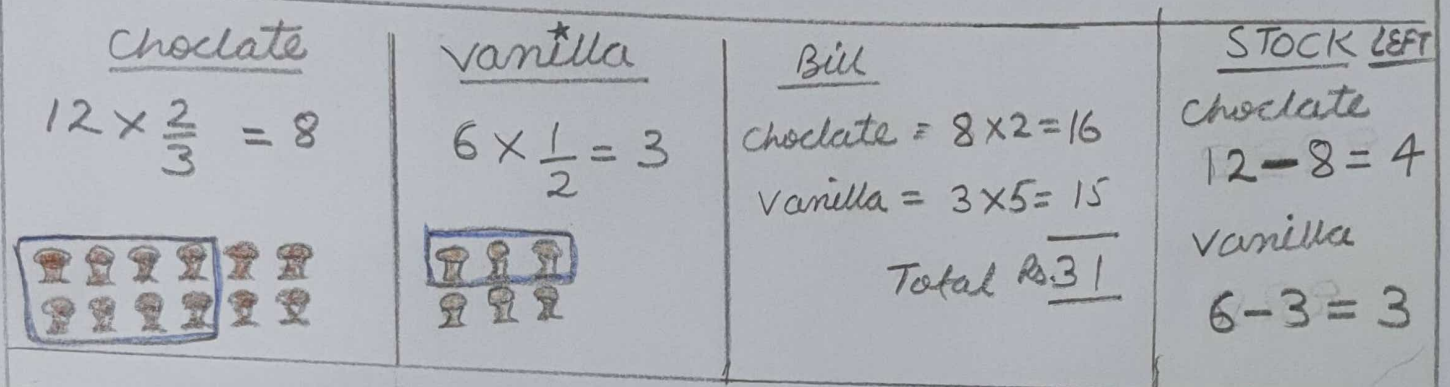 Choclate
12 × 2/3 = 8
Vanilla
6 × 1/2 = 3
Bill
Choclate = 8 × 2 = 16
Vanilla = 3 × 5 = 15
Total Rs. 31
STOCK LEFT
Choclate
12 - 8 = 4
Vanilla
6 - 3 = 3